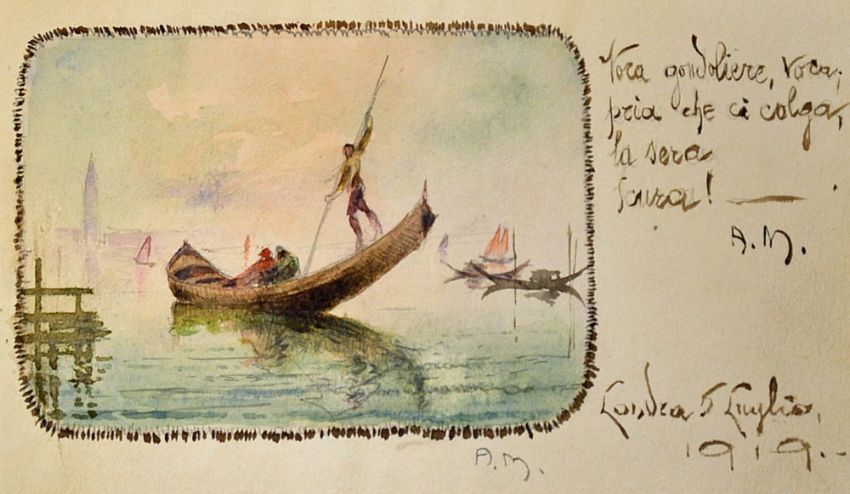 Voca gondoliere, voca,
pria che ci colga,
la sera
scura! —
A.M.
Londra 5 Luglio,
1919.-
A.M.